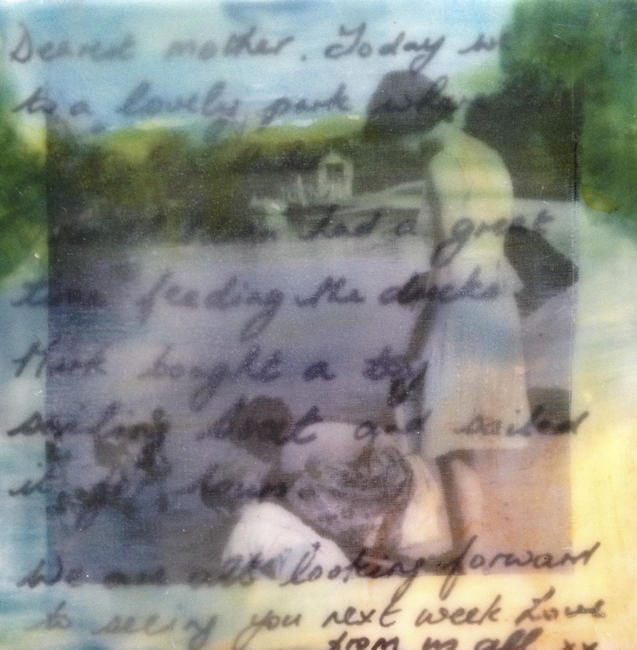 Dearest mother. Today we
to a lovely park where
had a great
time feeding the ducks
Mark bought a toy
sailing boat and sailed
it
We are all looking forward
to seeing you next week Love
from us all xx